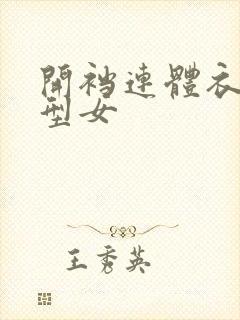 開襠連體衣
型女
王秀英